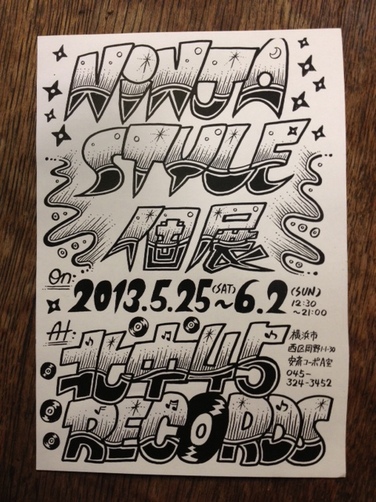 NiNJA
STYLE
個展
On:
2013.5.25(SAT)~6.2(SUN)
12:30
~21:00
At:
北中45
RECORDS
横浜市
西区岡野1-1-30
安斎コーポA室
045-
324-3452